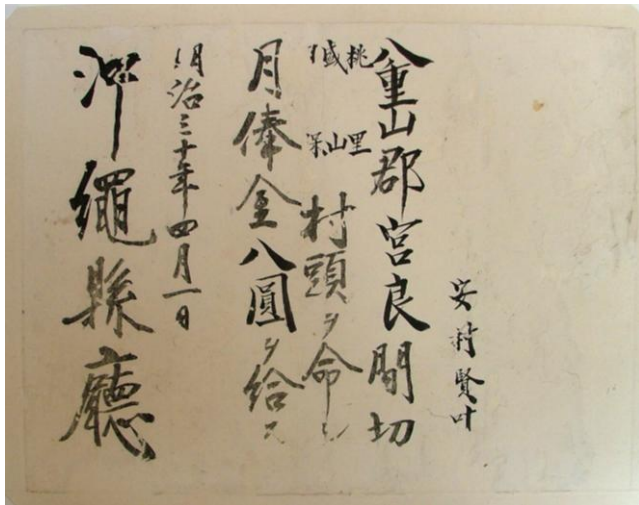 安村賢叶
八重山郡宮良間切
桃里
盛山
村頭ヲ命シ
月俸金八圓ヲ給ス
明治三十年四月一日
沖繩縣廳